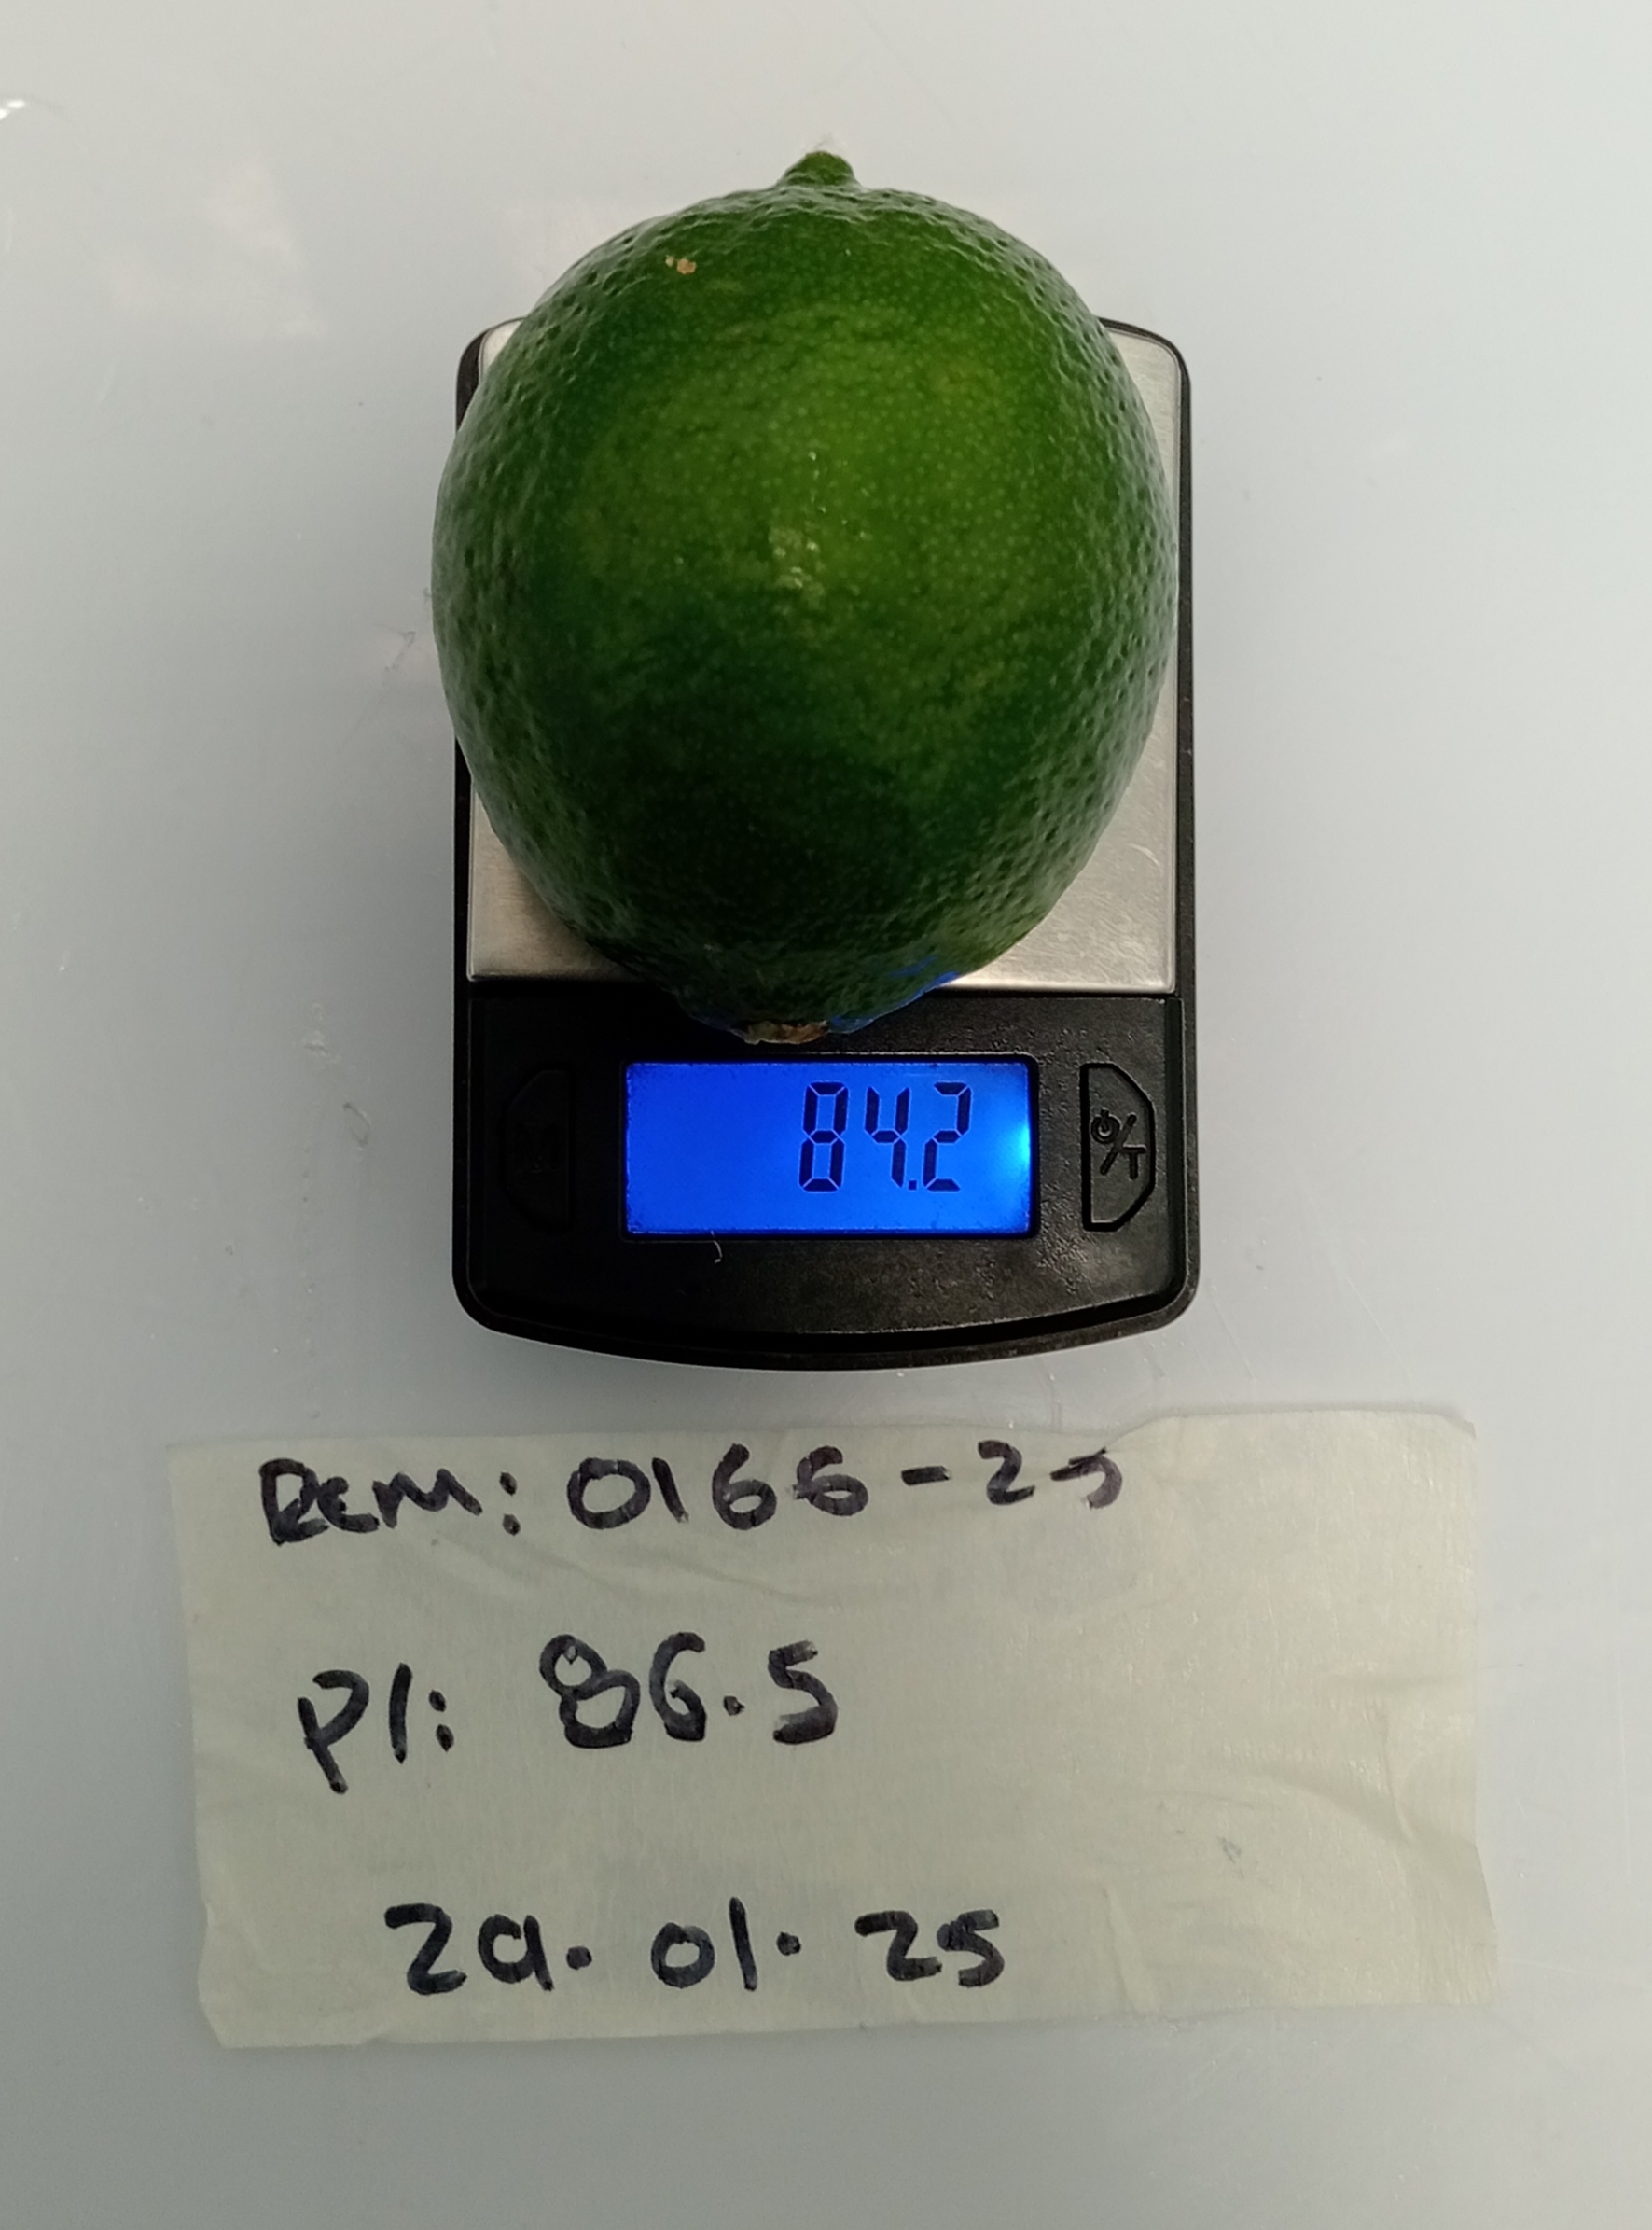 84.2
⏻/T
Rem: 0166-25
P1: 86.5
29.01.25